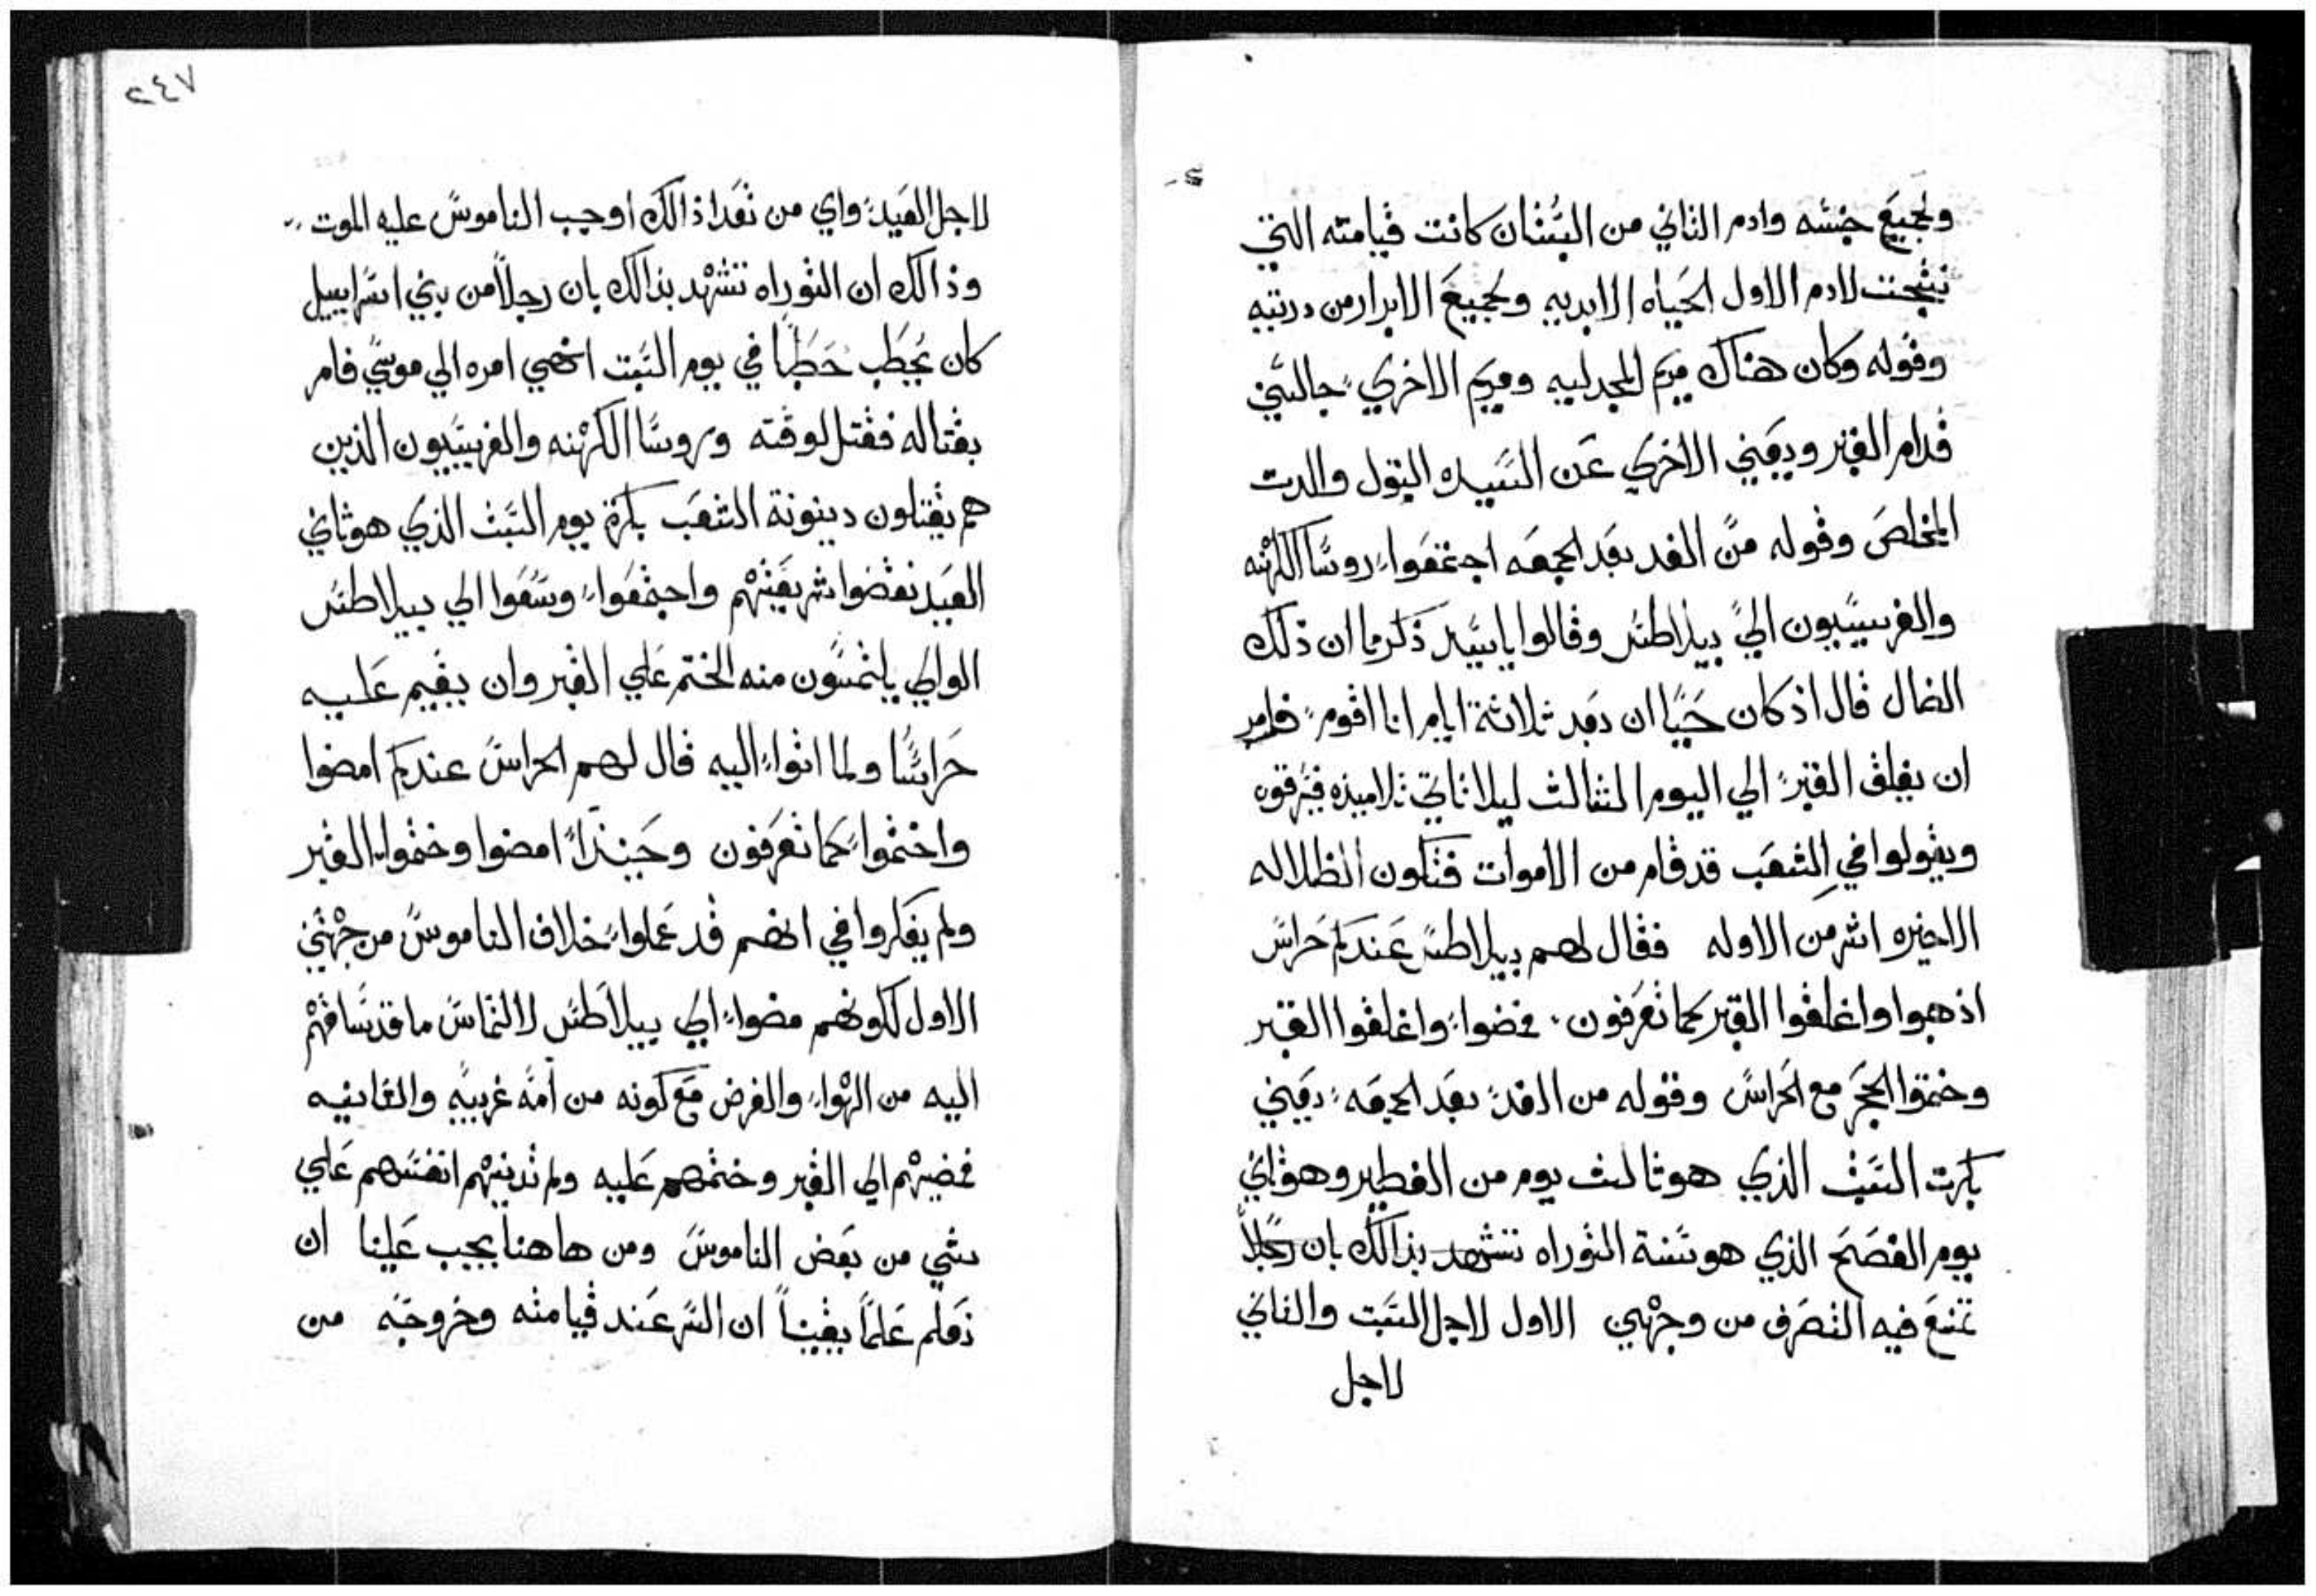 ولجميع جنسه وادم الثاني من البستان كانت قيامته التي
نتجت لادم الاول الحياه الابديه ولجميع الابرار من دريته
وقوله وكان هناك مريم المجدليه ومريم الاخري جالستين
قدام القبر ويعني الاخري عن السيده البتول والدت
المخلص وقوله من الغد بعد الجمعه اجتمعوا روسا الكهنه
والفريسيون الي بيلاطس وقالوا يا سيد ذكرنا ان ذلك
الضال قال اذ كان حيا ان بعد ثلاثة ايام انا اقوم فامر
ان يغلق القبر الي اليوم الثالث ليلا تاتي تلاميذه فيسرقوه
ويقولوا في الشعب قد قام من الاموات فتكون الظلاله
الاخيره اشر من الاوله فقال لهم بيلاطس عندكم حراس
اذهبوا واغلقوا القبر كما تعرفون فمضوا واغلقوا القبر
وختموا الحجر مع الحراس وقوله من الغد بعد الجمعه يعني
بكرت السبت الذي هو ثالث يوم من الفطير وهو ثاني
يوم الفصح الذي هو سنة التوراه تشهد بذالك بان رجلاً
تمنع فيه التصرف من وجهين الاول لاجل السبت والثاني
لاجل
٢٤٧
لاجل العيد واي من تعدا ذالك اوجب الناموس عليه الموت
وذالك ان التوراه تشهد بذالك بان رجلاً من بني اسراييل
كان يحطب حطبا في يوم السبت انهي امره الي موسي فامر
بقتاله فقتل لوقته وروسا الكهنه والفريسيون الذين
هم يقتلون دينونة الشعب بكرة يوم السبت الذي هو ثاني
العيد نقضوا شريعتهم واجتمعوا وسعوا الي بيلاطس
الوالي يلتمسون منه الختم علي القبر وان يقيم عليه
حراسا ولما اتوا اليه قال لهم الحراس عندكم امضوا
واختموا كما تعرفون وحينئذاً امضوا وختموا القبر
ولم يفكروا في انهم قد عملوا خلاف الناموس من جهتين
الاول لكونهم مضوا الي بيلاطس لالتماس ما قد ساقهم
اليه من الهوا والغرض مع كونه من امه غريبه والثانيه
فمضيهم الي القبر وختمهم عليه ولم تدينهم انفسهم علي
شي من بعض الناموس ومن هاهنا يجب علينا ان
نعلم علماً يقيناً ان السر عند قيامته وخروجه من